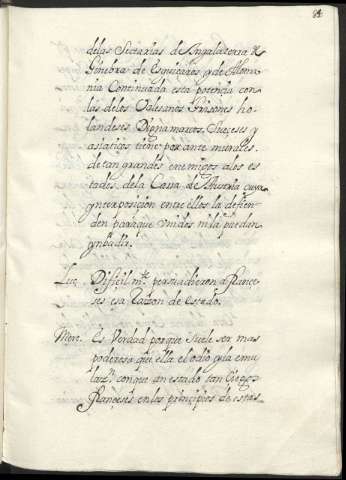 84
delas Sectarias de Yngalaterra &
Ginebra de Esquiçaros y de Alema
nia Continuada esta potençia con
las delos Valesanos Grisones ho
landeses Dignamarcos, Sueceses y
asiaticos tiene por ante murales
de tan grandes enemigos alos es
tados dela Casa de Austria cuya
ynterposiçion entre ellos la defien
den paraque unidos nila puedan
ynbadir.
Luc. Difiçil mte. persuadieron a françe
ses esa Razon de Estado.
Merc. Es Verdad porque suele ser mas
poderoso que ella el odio y la emu
laçn. conque an estado tan Ciegos
françeses en los prinçipios de estas